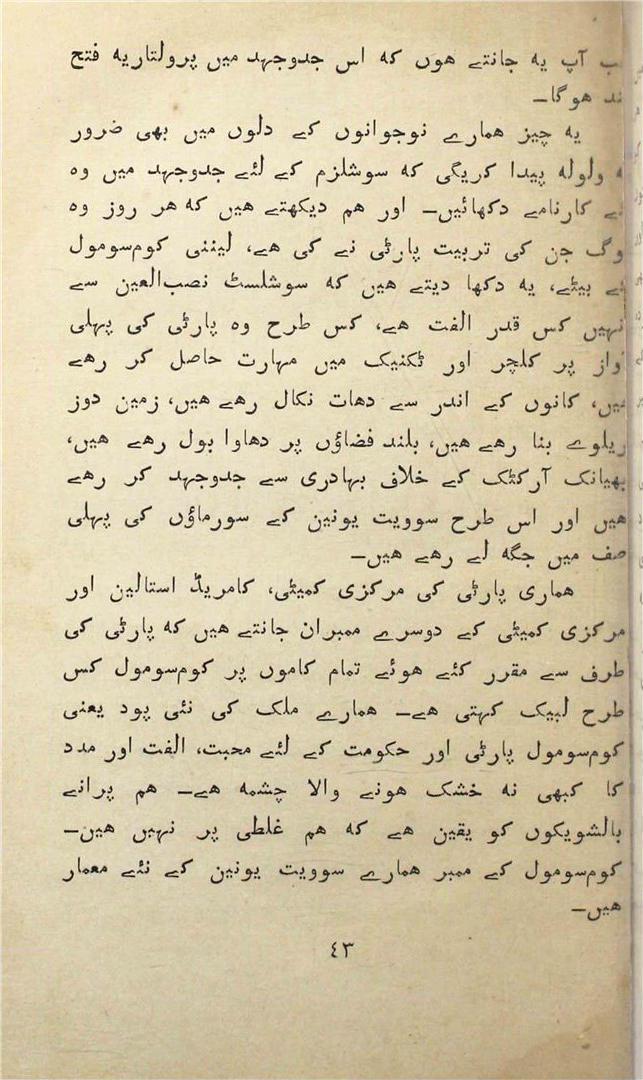 آپ یہ جانتے ھوں کہ اس جدوجہد میں پرولتاریہ فتح
ھوگا۔
یہ چیز ھمارے نوجوانوں کے دلوں میں بھی ضرور
ولولہ پیدا کریگی کہ سوشلزم کے لئے جدوجہد میں وہ
کارنامے دکھائیں۔ اور ھم دیکھتے ھیں کہ ھر روز وہ
لوگ جن کی تربیت پارٹی نے کی ھے، لیننی کوم‌سومول
کے بیٹے، یہ دکھا دیتے ھیں کہ سوشلسٹ نصب‌العین سے
انہیں کس قدر الفت ھے، کس طرح وہ پارٹی کی پہلی
آواز پر کلچر اور ٹکنیک میں مہارت حاصل کر رھے
ھیں، کانوں کے اندر سے دھات نکال رھے ھیں، زمین دوز
ریلوے بنا رھے ھیں، بلند فضاؤں پر دھاوا بول رھے ھیں،
بھیانک آرکٹک کے خلاف بہادری سے جدوجہد کر رھے
ھیں اور اس طرح سوویت یونین کے سورماؤں کی پہلی
صف میں جگہ لے رھے ھیں۔
ھماری پارٹی کی مرکزی کمیٹی، کامریڈ استالین اور
مرکزی کمیٹی کے دوسرے ممبران جانتے ھیں کہ پارٹی کی
طرف سے مقرر کئے ھوئے تمام کاموں پر کوم‌سومول کس
طرح لبیک کہتی ھے۔ ھمارے ملک کی نئی پود یعنی
کوم‌سومول پارٹی اور حکومت کے لئے محبت، الفت اور مدد
کا کبھی نہ خشک ھونے والا چشمہ ھے۔ ھم پرانے
بالشویکوں کو یقین ھے کہ ھم غلطی پر نہیں ھین۔
کوم‌سومول کے ممبر ھمارے سوویت یونین کے نئے معمار
ھیں۔
٤٣